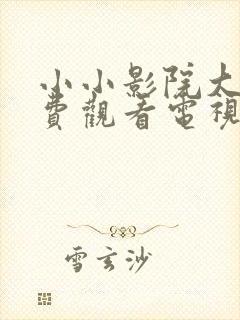 小小影院大
費觀看電視
雪玄沙